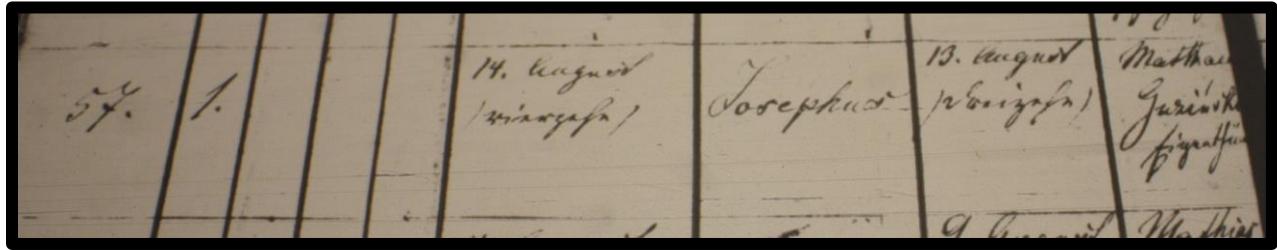 57.
1.
14. August
(vierzehn)
Josephus
13. August
(dreizehn)
Matthaeu
Eigenthü
9. August
Mathias